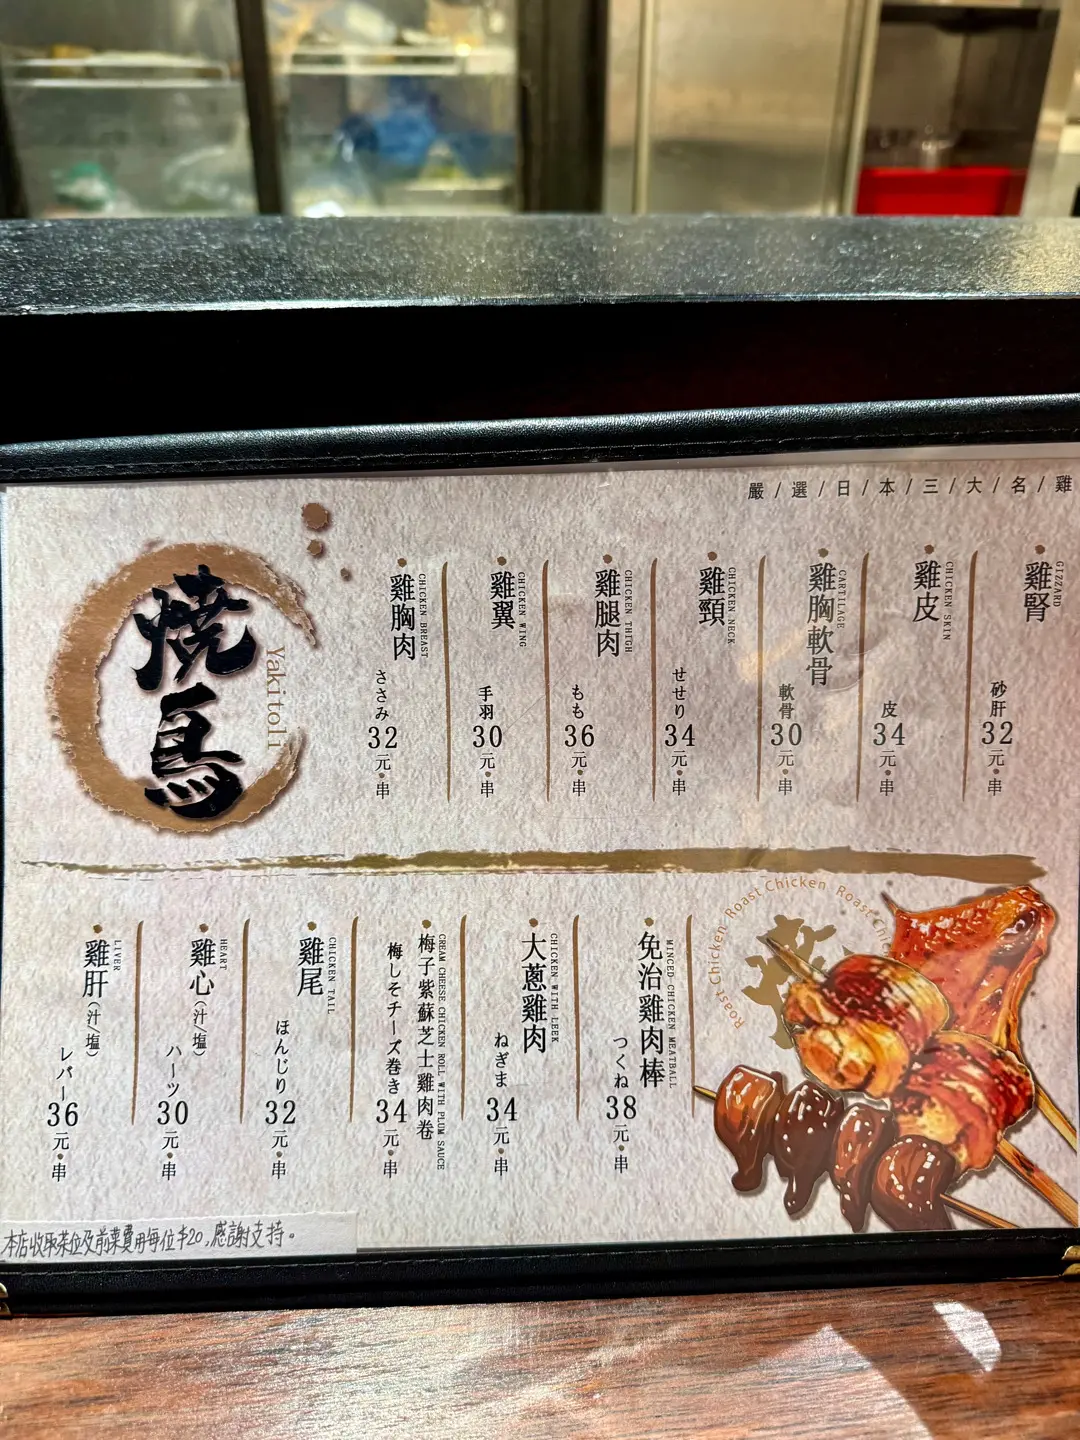 嚴/選/日/本/三/大/名/雞
焼鳥
Yakitoli
雞腎
GIZZARD
砂肝
32元・串
雞皮
CHICKEN SKIN
皮
34元・串
雞胸軟骨
CARTILAGE
軟骨
30元・串
雞頸
CHICKEN NECK
せせり
34元・串
雞腿肉
CHICKEN THIGH
もも
36元・串
雞翼
CHICKEN WING
手羽
30元・串
雞胸肉
CHICKEN BREAST
ささみ
32元・串
Roast Chicken Roast Chicken Roast
免治雞肉棒
MINCED CHICKEN MEATBALL
つくね
38元・串
大蔥雞肉
CHICKEN WITH LEEK
ねぎま
34元・串
梅子紫蘇芝士雞肉卷
CREAM CHEESE CHICKEN ROLL WITH PLUM SAUCE
梅しそチーズ巻き
34元・串
雞尾
CHICKEN TAIL
ほんじり
32元・串
雞心(汁/塩)
HEART
ハーツ
30元・串
雞肝(汁/塩)
LIVER
レバー
36元・串
本店收取茶位及前菜費用每位$20,感謝支持。